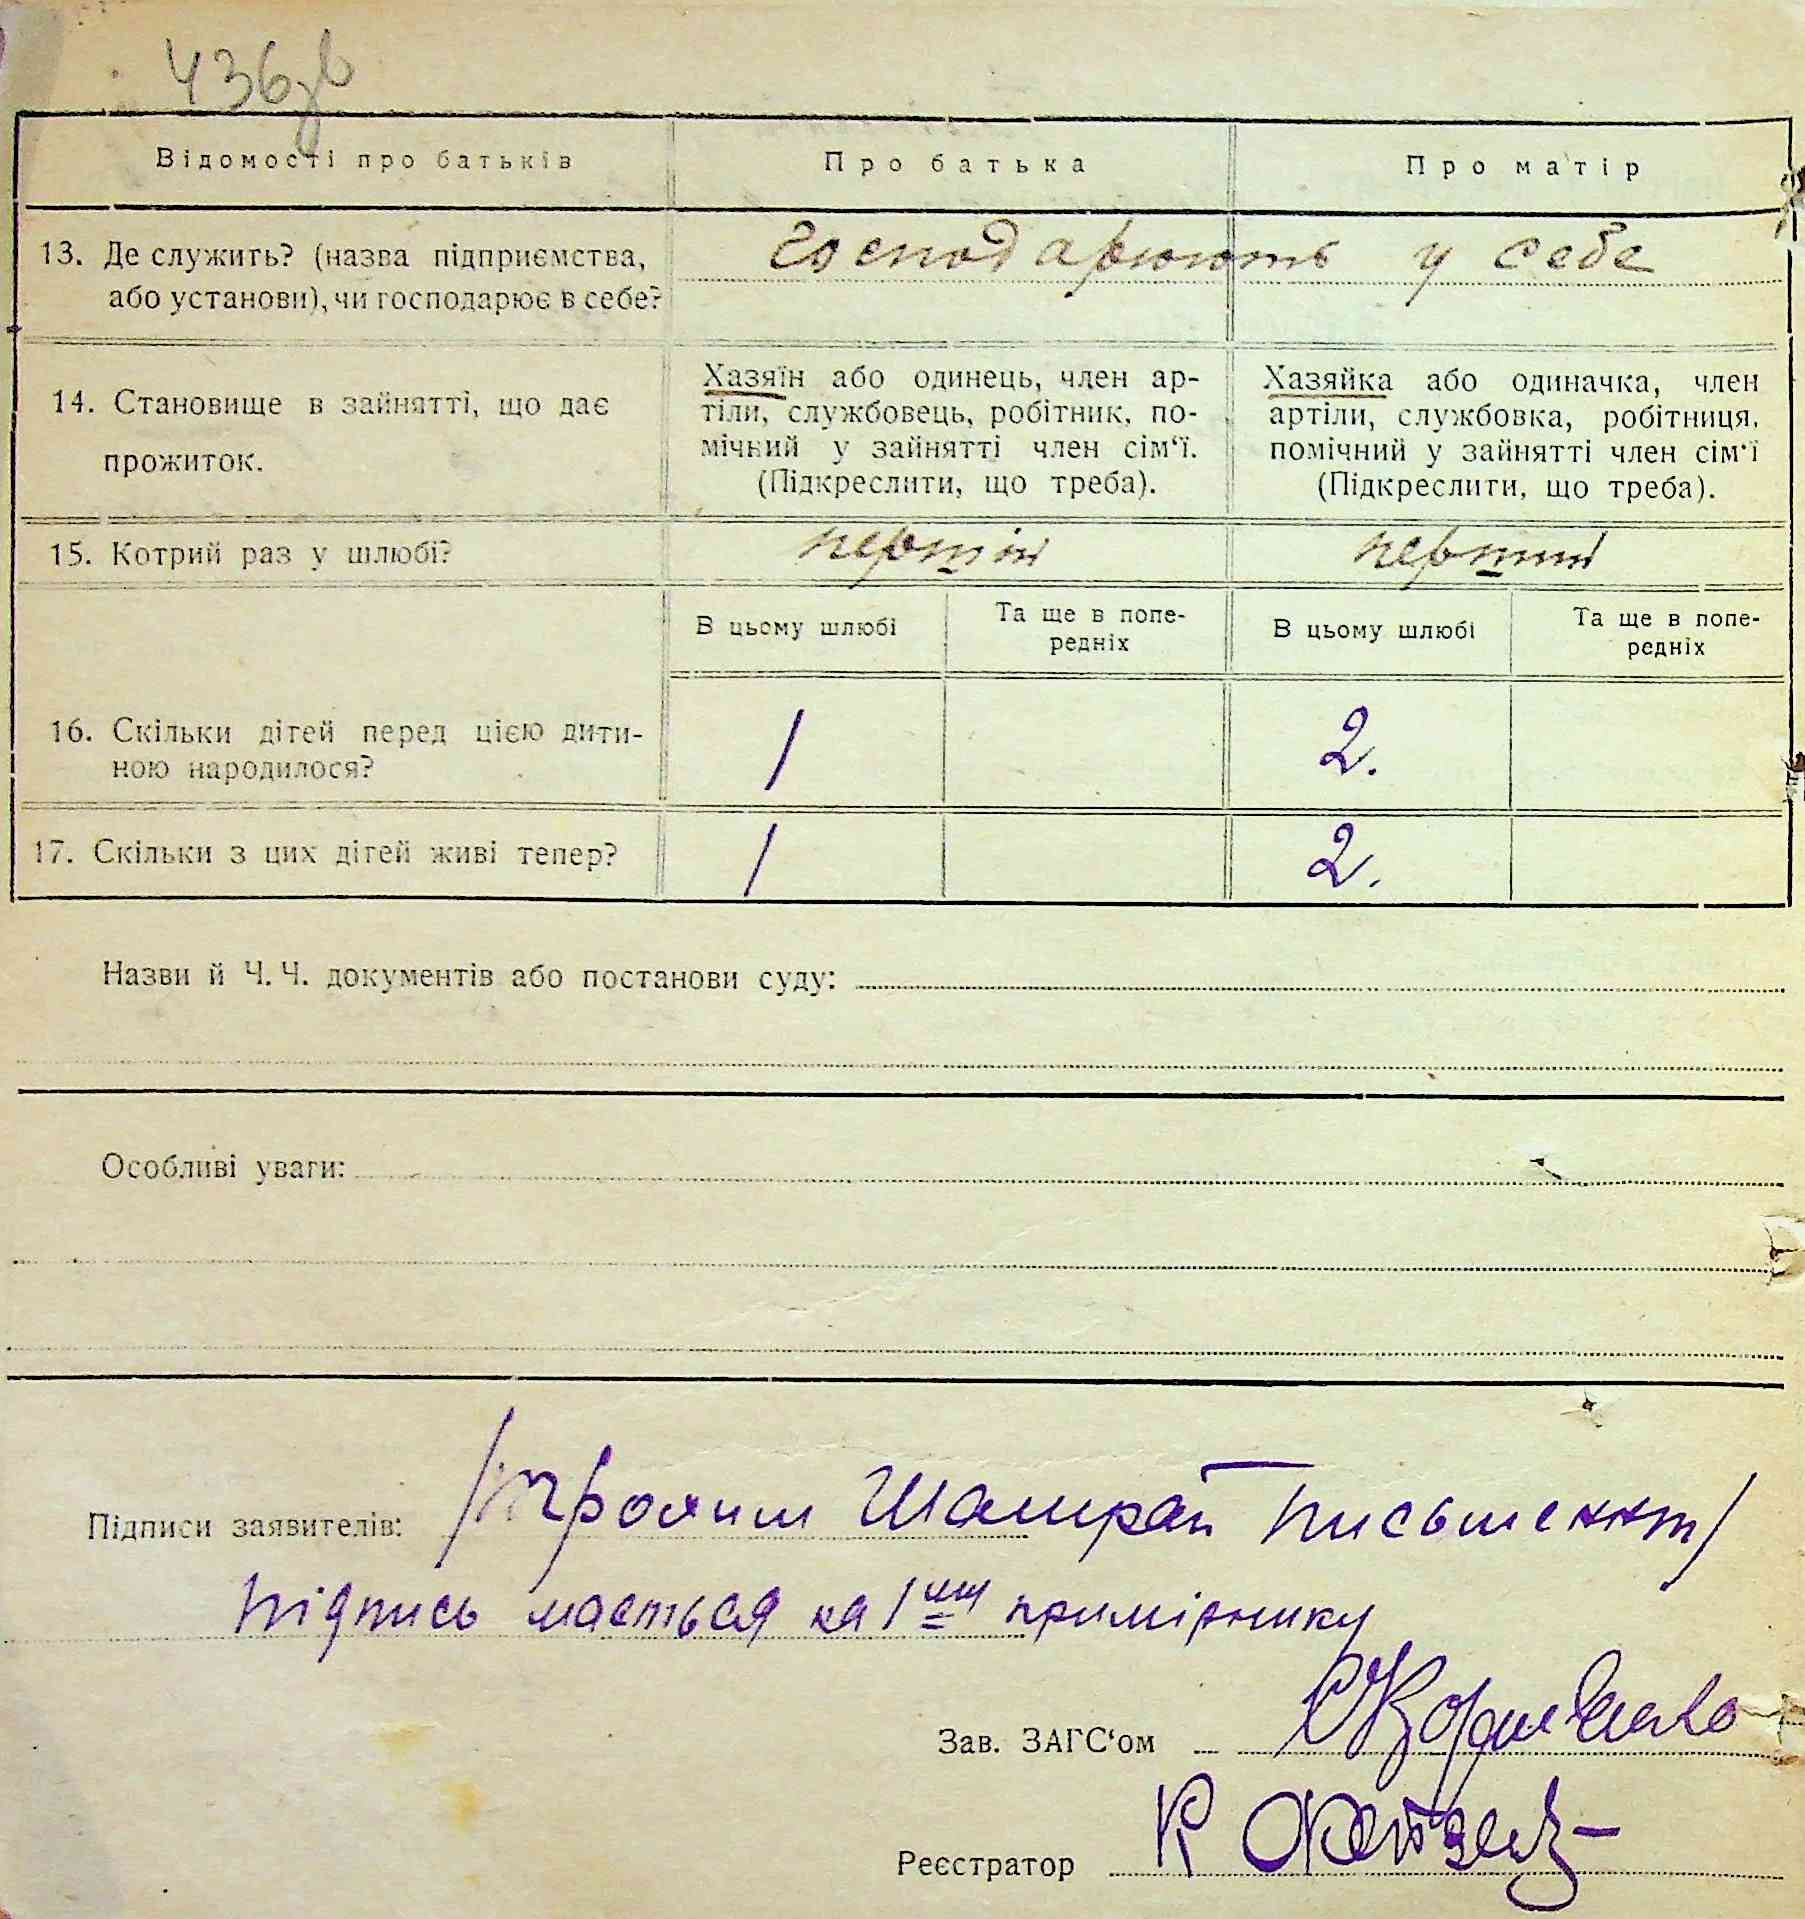 436зв
Відомості про батьків
Про батька
Про матір
13. Де служить? (назва підприємства,
або установи), чи господарює в себе?
господарюють у себе
14. Становище в зайнятті, що дає
прожиток.
Хазяїн або одинець, член ар-
тіли, службовець, робітник, по-
мічний у зайнятті член сім‘ї.
(Підкреслити, що треба).
Хазяйка або одиначка, член
артіли, службовка, робітниця,
помічний у зайнятті член сім‘ї
(Підкреслити, що треба).
15. Котрий раз у шлюбі?
першій
перший
В цьому шлюбі
Та ще в попе-
редніх
В цьому шлюбі
Та ще в попе-
редніх
16. Скільки дітей перед цією дити-
ною народилося?
1
2.
17. Скільки з цих дітей живі тепер?
1
2.
Назви й Ч. Ч. документів або постанови суду:
Особливі уваги:
Підписи заявителів: /Трохим Шамрай письменнт/
підпись мається на 1им примірнику
Зав. ЗАГС‘ом
Реєстратор К